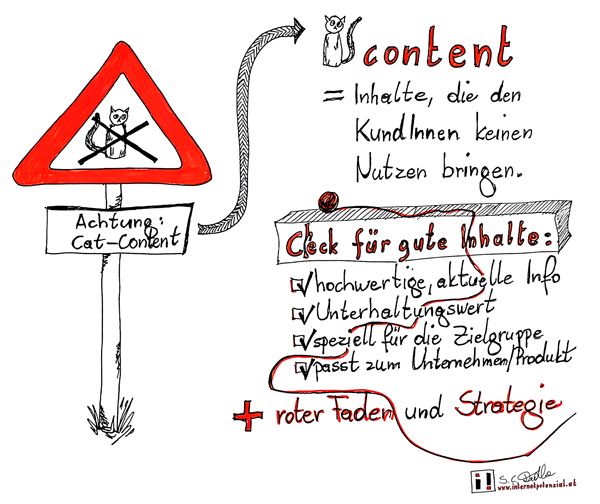 Achtung:
Cat-Content
content
= Inhalte, die den
KundInnen keinen
Nutzen bringen.
Check für gute Inhalte:
hochwertige, aktuelle Info
Unterhaltungswert
speziell für die Zielgruppe
passt zum Unternehmen/Produkt
+ roter Faden und Strategie
www.internetpotenzial.at